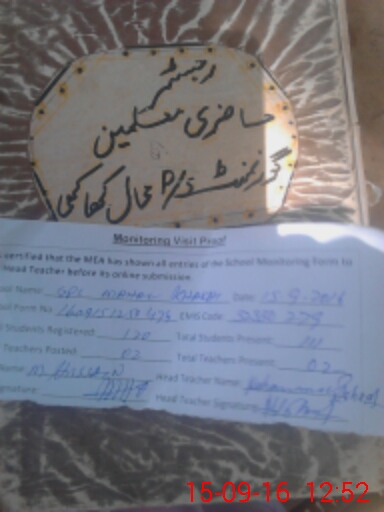 رجسٹر
حاضری معلمین
گورنمنٹ P/S محال کھاکھی
Monitoring Visit Proof
certified that the MEA has shown all entries of the School Monitoring Form to
Head Teacher before its online submission.
ool Name: GPS Date: 15-9-2016
ool Form No: EMIS Code:
Students Registered: 120 Total Students Present: 101
Teachers Posted: 02 Total Teachers Present: 02
Name: M Hussain Head Teacher Name: Muhammad
gnature: Head Teacher Signature:
15-09-16 12:52